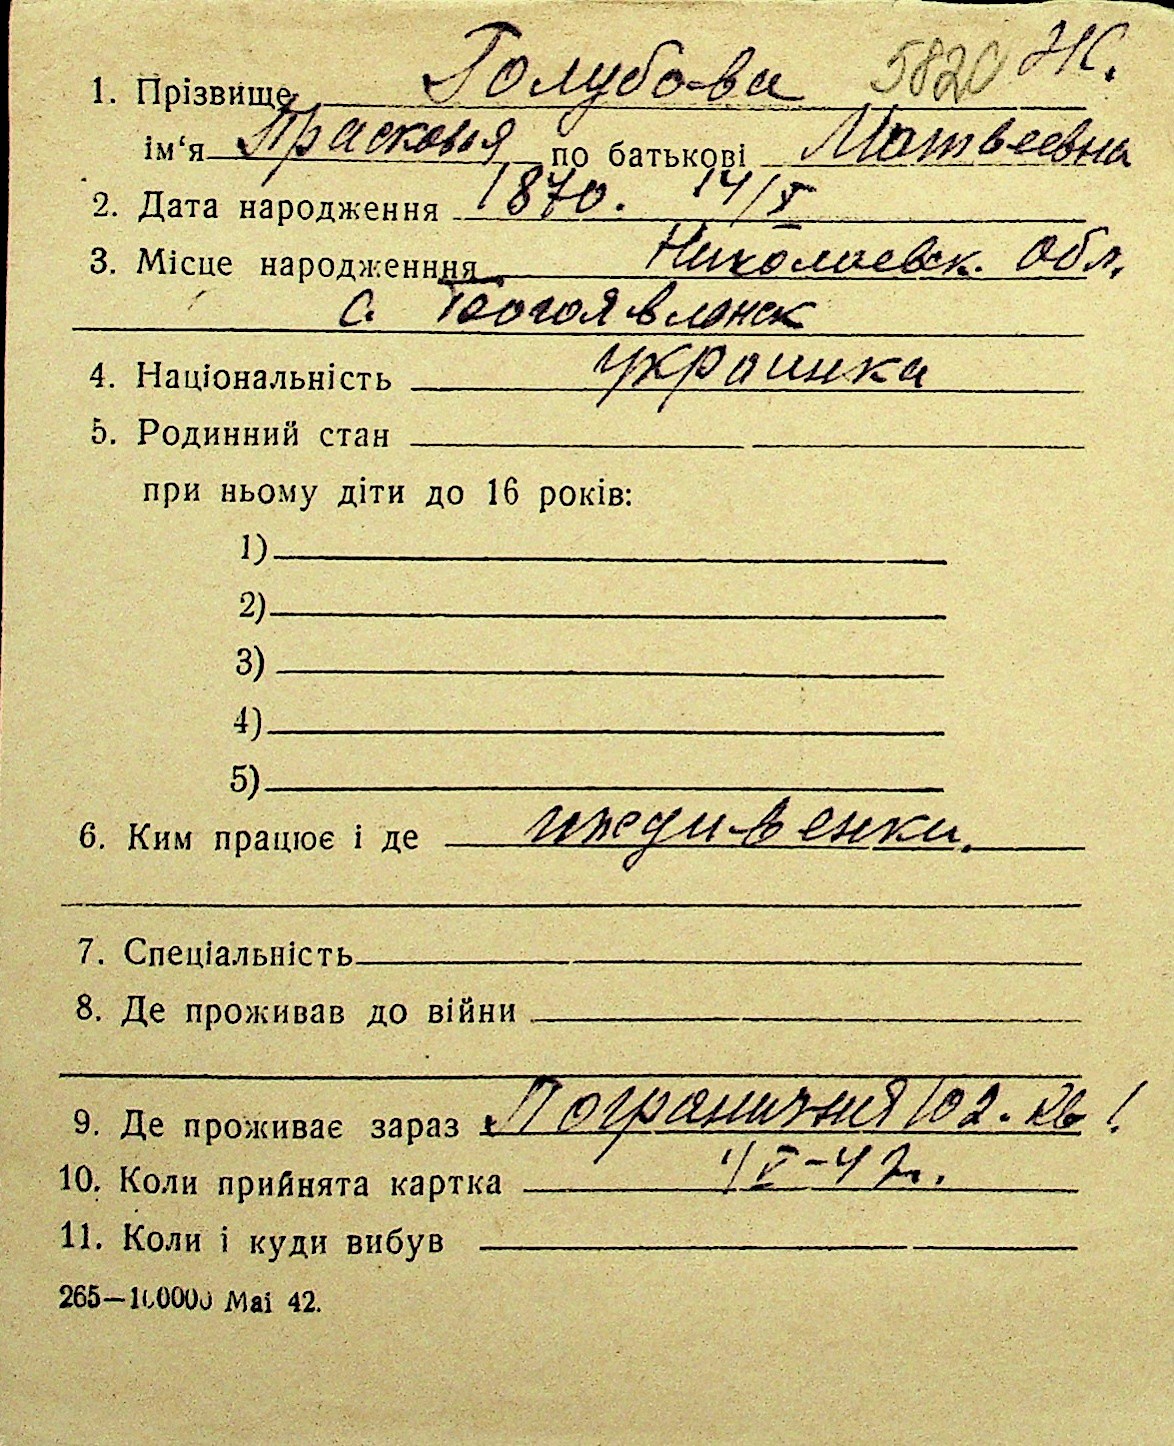 1. Прізвище Голубова 5820 Ж.
ім'я Прасковья по батькові Матвеевна
2. Дата народження 1870. 14/X
3. Місце народженння Николаевск. обл.
с. Богоявленск
4. Національність украинка
5. Родинний стан
при ньому діти до 16 років:
1)
2)
3)
4)
5)
6. Ким працює і де иждивенка.
7. Спеціальність
8. Де проживав до війни
9. Де проживає зараз Пограничная 102. кв 1
10. Коли прийнята картка
11. Коли і куди вибув
265—100000 Mai 42.